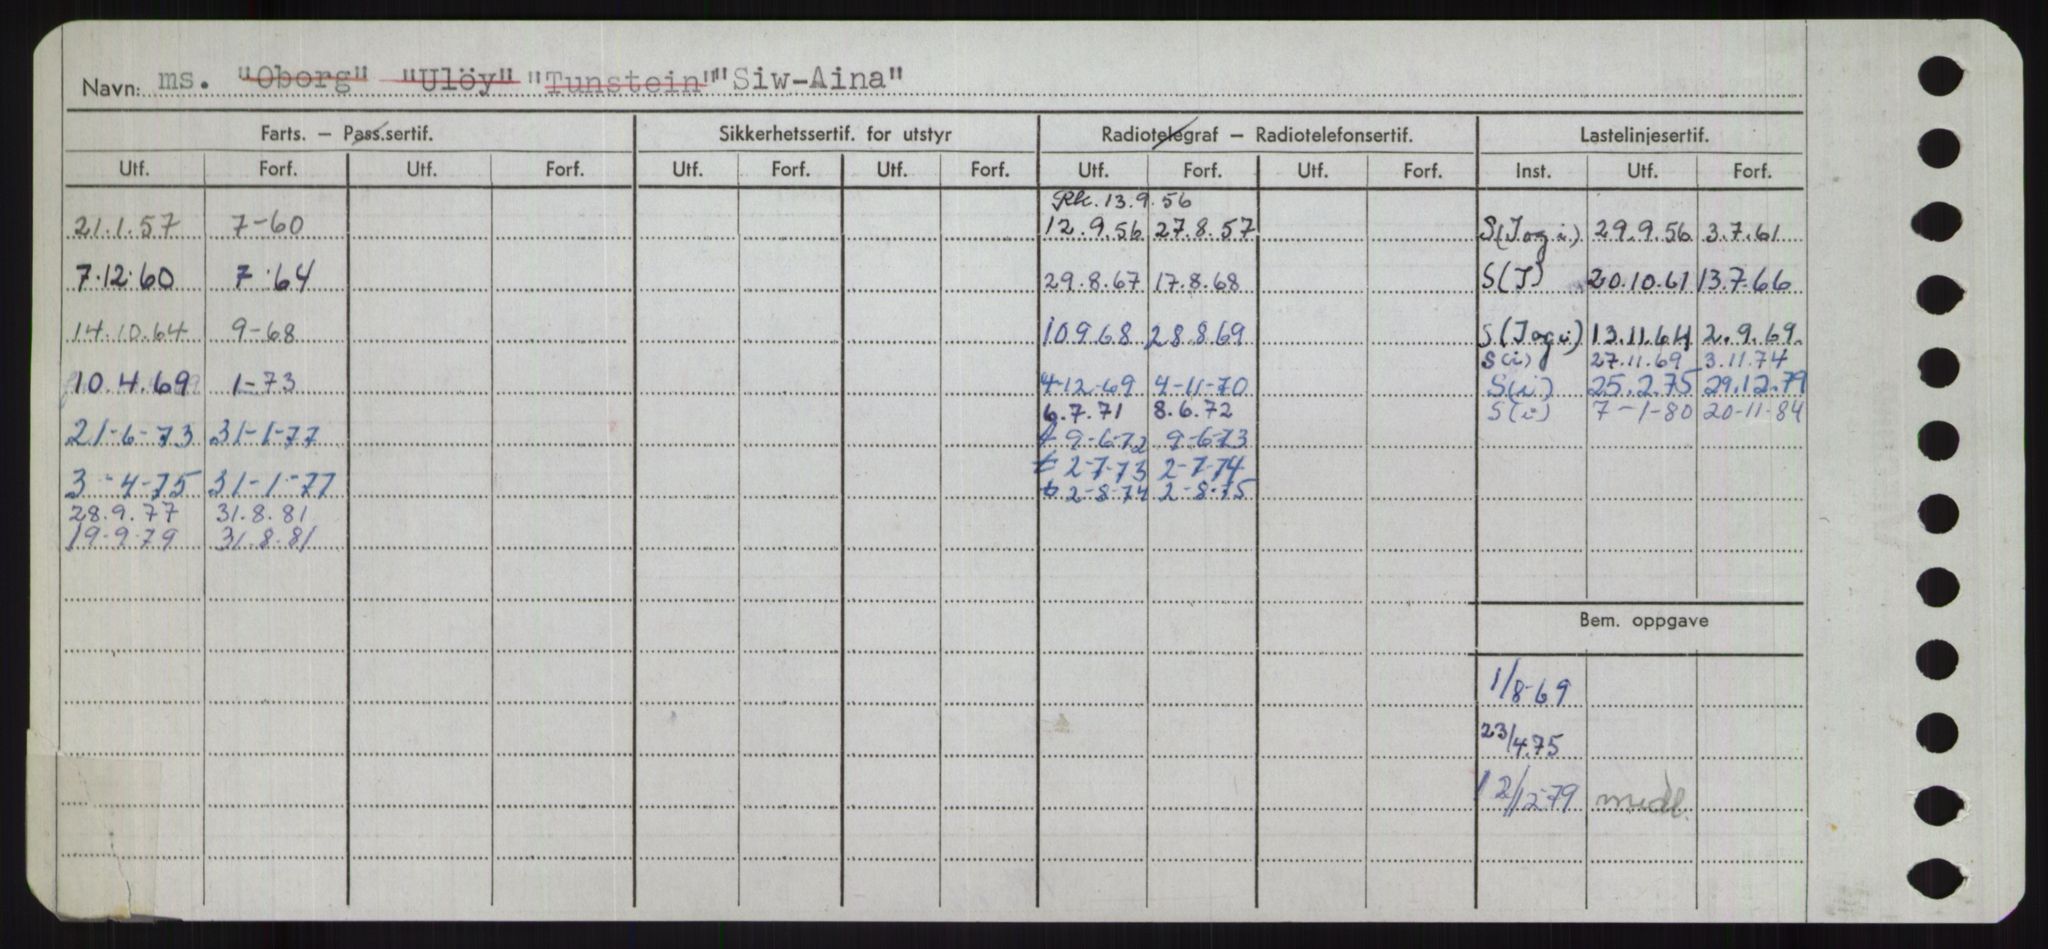 Navn: ms. "Oborg" "Ulöy" "Tunstein" "Siw-Aina"
Farts. — Pass.sertif. Sikkerhetssertif. for utstyr Radiotelegraf — Radiotelefonsertif. Lastelinjesertif.
Utf. Forf. Utf. Forf. Utf. Forf. Utf. Forf. Utf. Forf. Utf. Forf. Inst. Utf. Forf.
Rk. 13.9.56
21.1.57 7-60 12.9.56 27.8.57 S(J og i) 29.9.56 3.7.61
7.12.60 7.64 29.8.67 17.8.68 S(J) 20.10.61 13.7.66
14.10.64 9-68 10.9.68 28.8.69 S(J og i) 13.11.64 2.9.69.
S(i) 27.11.69 3.11.74
10.4.69 1-73 4-12-69 4-11-70 S(i) 25.2.75 29.12.79
6.7.71 8.6.72 S(i) 7-1-80 20-11-84
21-6-73 31-1-77 t 9-6-72 9-6-73
t 2-7-73 2-7-74
3-4-75 31-1-77 t 2-8-74 2-8-75
28.9.77 31.8.81
19-9-79 31.8.81
Bem. oppgave
1/8-69
23/4.75
12/12-79 medl.